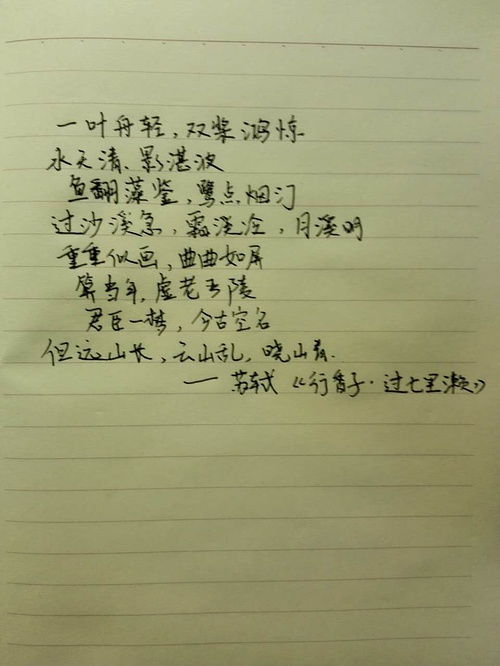 一叶舟轻，双桨鸿惊
水天清、影湛波
鱼翻藻鉴，鹭点烟汀
过沙溪急，霜溪冷，月溪明
重重似画，曲曲如屏
算当年，虚老严陵
君臣一梦，今古空名
但远山长，云山乱，晓山青．
——苏轼《行香子·过七里濑》